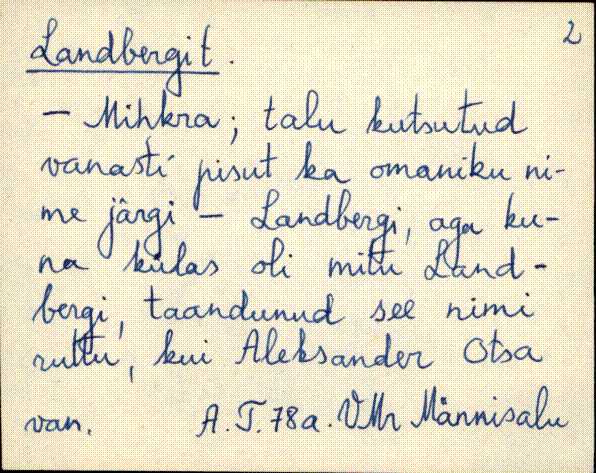 Landbergit.
2
- Mihkra; talu kutsutud
vanasti pisut ka omaniku ni-
me järgi - Landbergi, aga ku-
na külas oli mitu Land-
bergi, taandunud see nimi
ruttu, kui Aleksander Otsa
van. A. T. 78a. VMr Männisalu